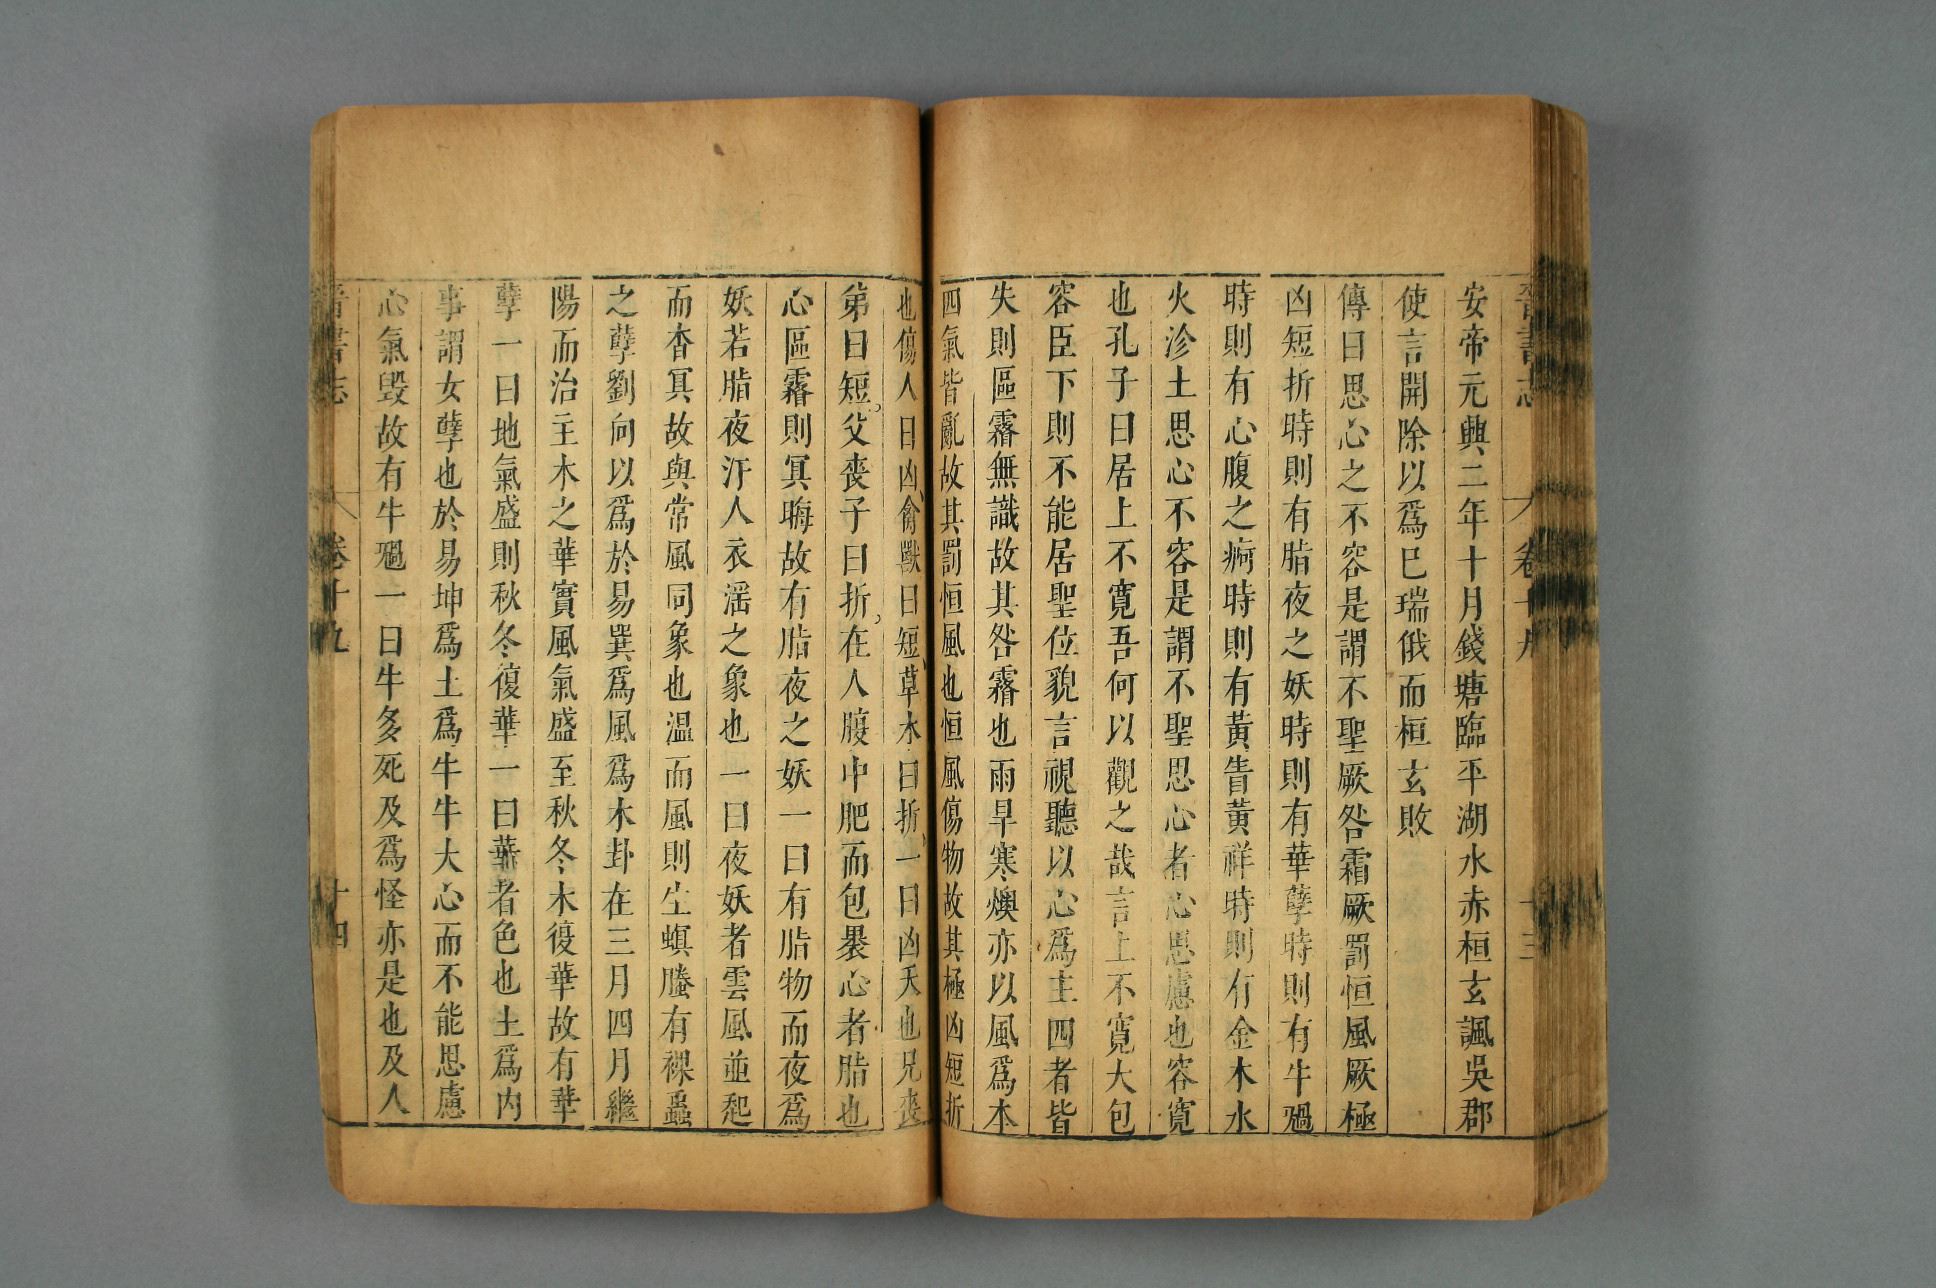 晉書志 卷十九 十三
安帝元興二年十月錢塘臨平湖水赤桓玄諷吳郡
使言開除以爲巳瑞俄而桓玄敗
傳曰思心之不容是謂不聖厥咎霿厥罰恒風厥極
凶短折時則有脂夜之妖時則有華孽時則有牛禍
時則有心腹之痾時則有黃眚黃祥時則有金木水
火沴土思心不容是謂不聖思心者心思慮也容寬
也孔子曰居上不寬吾何以觀之哉言上不寬大包
容臣下則不能居聖位貌言視聽以心爲主四者皆
失則區霿無識故其咎霿也雨旱寒燠亦以風爲本
四氣皆亂故其罰恒風也恒風傷物故其極凶短折
也傷人曰凶禽獸曰短草木曰折一曰凶夭也兄喪
弟曰短父喪子曰折在人腹中肥而包裹心者脂也
心區霿則冥晦故有脂夜之妖一曰有脂物而夜爲
妖若脂夜汙人衣淫之象也一曰夜妖者雲風並起
而杳冥故與常風同象也温而風則生螟螣有裸蟲
之孽劉向以爲於易巽爲風爲木卦在三月四月繼
陽而治主木之華實風氣盛至秋冬木復華故有華
孽一曰地氣盛則秋冬復華一曰華者色也土爲内
事謂女孽也於易坤爲土爲牛牛大心而不能思慮
心氣毀故有牛禍一曰牛多死及爲怪亦是也及人
晉書志 卷十九 十四